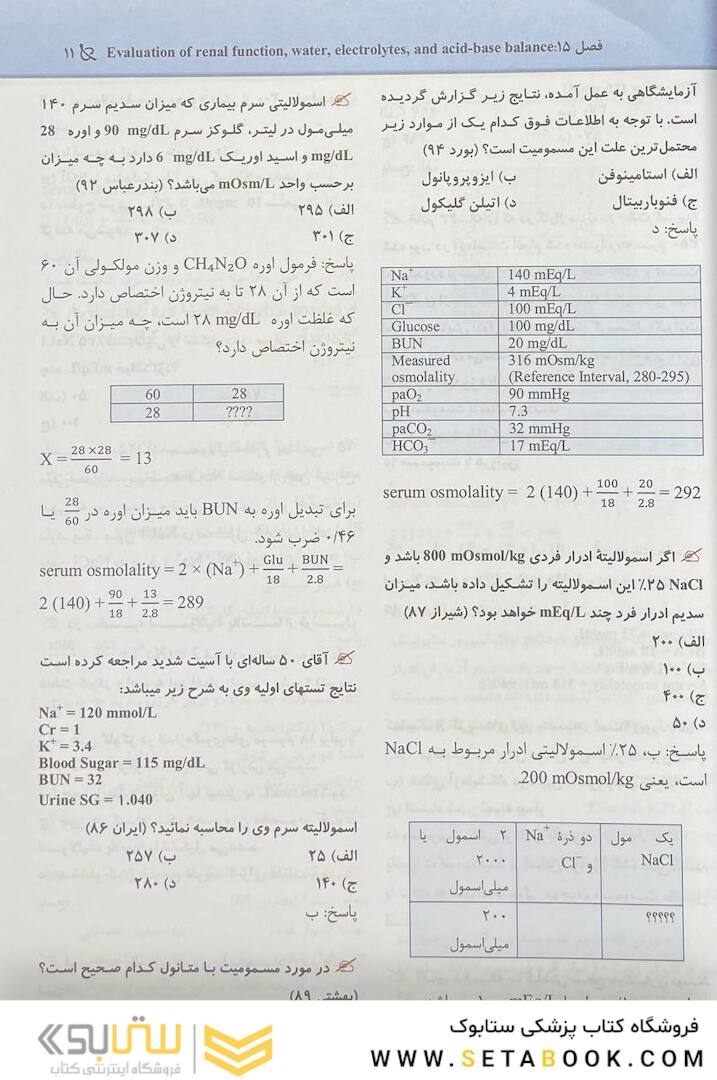 فصل ۱۵: Evaluation of renal function, water, electrolytes, and acid-base balance ۱۱
آزمایشگاهی به عمل آمده، نتایج زیر گزارش گردیده
است. با توجه به اطلاعات فوق کدام یک از موارد زیر
محتمل‌ترین علت این مسمومیت است؟ (بورد ۹۴)
الف) استامینوفن ب) ایزوپروپانول
ج) فنوباربیتال د) اتیلن گلیکول
پاسخ: د
Na⁺ 140 mEq/L
K⁺ 4 mEq/L
Cl⁻ 100 mEq/L
Glucose 100 mg/dL
BUN 20 mg/dL
Measured 316 mOsm/kg
osmolality (Reference Interval, 280-295)
paO₂ 90 mmHg
pH 7.3
paCO₂ 32 mmHg
HCO₃⁻ 17 mEq/L
serum osmolality = 2 (140) + 100/18 + 20/2.8 = 292
اگر اسمولالیتهٔ ادرار فردی 800 mOsmol/kg باشد و
NaCl ۲۵٪ این اسمولالیته را تشکیل داده باشد، میزان
سدیم ادرار فرد چند mEq/L خواهد بود؟ (شیراز ۸۷)
الف) ۲۰۰
ب) ۱۰۰
ج) ۴۰۰
د) ۵۰
پاسخ: ب، ۲۵٪ اسمولالیتی ادرار مربوط به NaCl
است، یعنی 200 mOsmol/kg.
یک مول دو ذرهٔ Na⁺ ۲ اسمول یا
NaCl و Cl⁻ ۲۰۰۰
میلی‌اسمول
؟؟؟؟؟ ۲۰۰
میلی‌اسمول
اسمولالیتی سرم بیماری که میزان سدیم سرم ۱۴۰
میلی‌مول در لیتر، گلوکز سرم 90 mg/dL و اوره 28
mg/dL و اسید اوریک 6 mg/dL دارد به چه میزان
برحسب واحد mOsm/L می‌باشد؟ (بندرعباس ۹۲)
الف) ۲۹۵ ب) ۲۹۸
ج) ۳۰۱ د) ۳۰۷
پاسخ: فرمول اوره CH₄N₂O و وزن مولکولی آن ۶۰
است که از آن ۲۸ تا به نیتروژن اختصاص دارد. حال
که غلظت اوره ۲۸ mg/dL است، چه میزان آن به
نیتروژن اختصاص دارد؟
60 28
28 ????
X = 28×28/60 = 13
برای تبدیل اوره به BUN باید میزان اوره در 28/60 یا
۰/۴۶ ضرب شود.
serum osmolality = 2 × (Na⁺) + Glu/18 + BUN/2.8 =
2 (140) + 90/18 + 13/2.8 = 289
آقای ۵۰ ساله‌ای با آسیت شدید مراجعه کرده است
نتایج تستهای اولیه وی به شرح زیر میباشد:
Na⁺ = 120 mmol/L
Cr = 1
K⁺ = 3.4
Blood Sugar = 115 mg/dL
BUN = 32
Urine SG = ۱.040
اسمولالیته سرم وی را محاسبه نمائید؟ (ایران ۸۶)
الف) ۲۵ ب) ۲۵۷
ج) ۱۴۰ د) ۲۸۰
پاسخ: ب
در مورد مسمومیت با متانول کدام صحیح است؟
(بهشتی ۸۹)
فروشگاه کتاب پزشکی ستابوک
WWW.SETABOOK.COM
ستابوک
فروشگاه اینترنتی کتاب